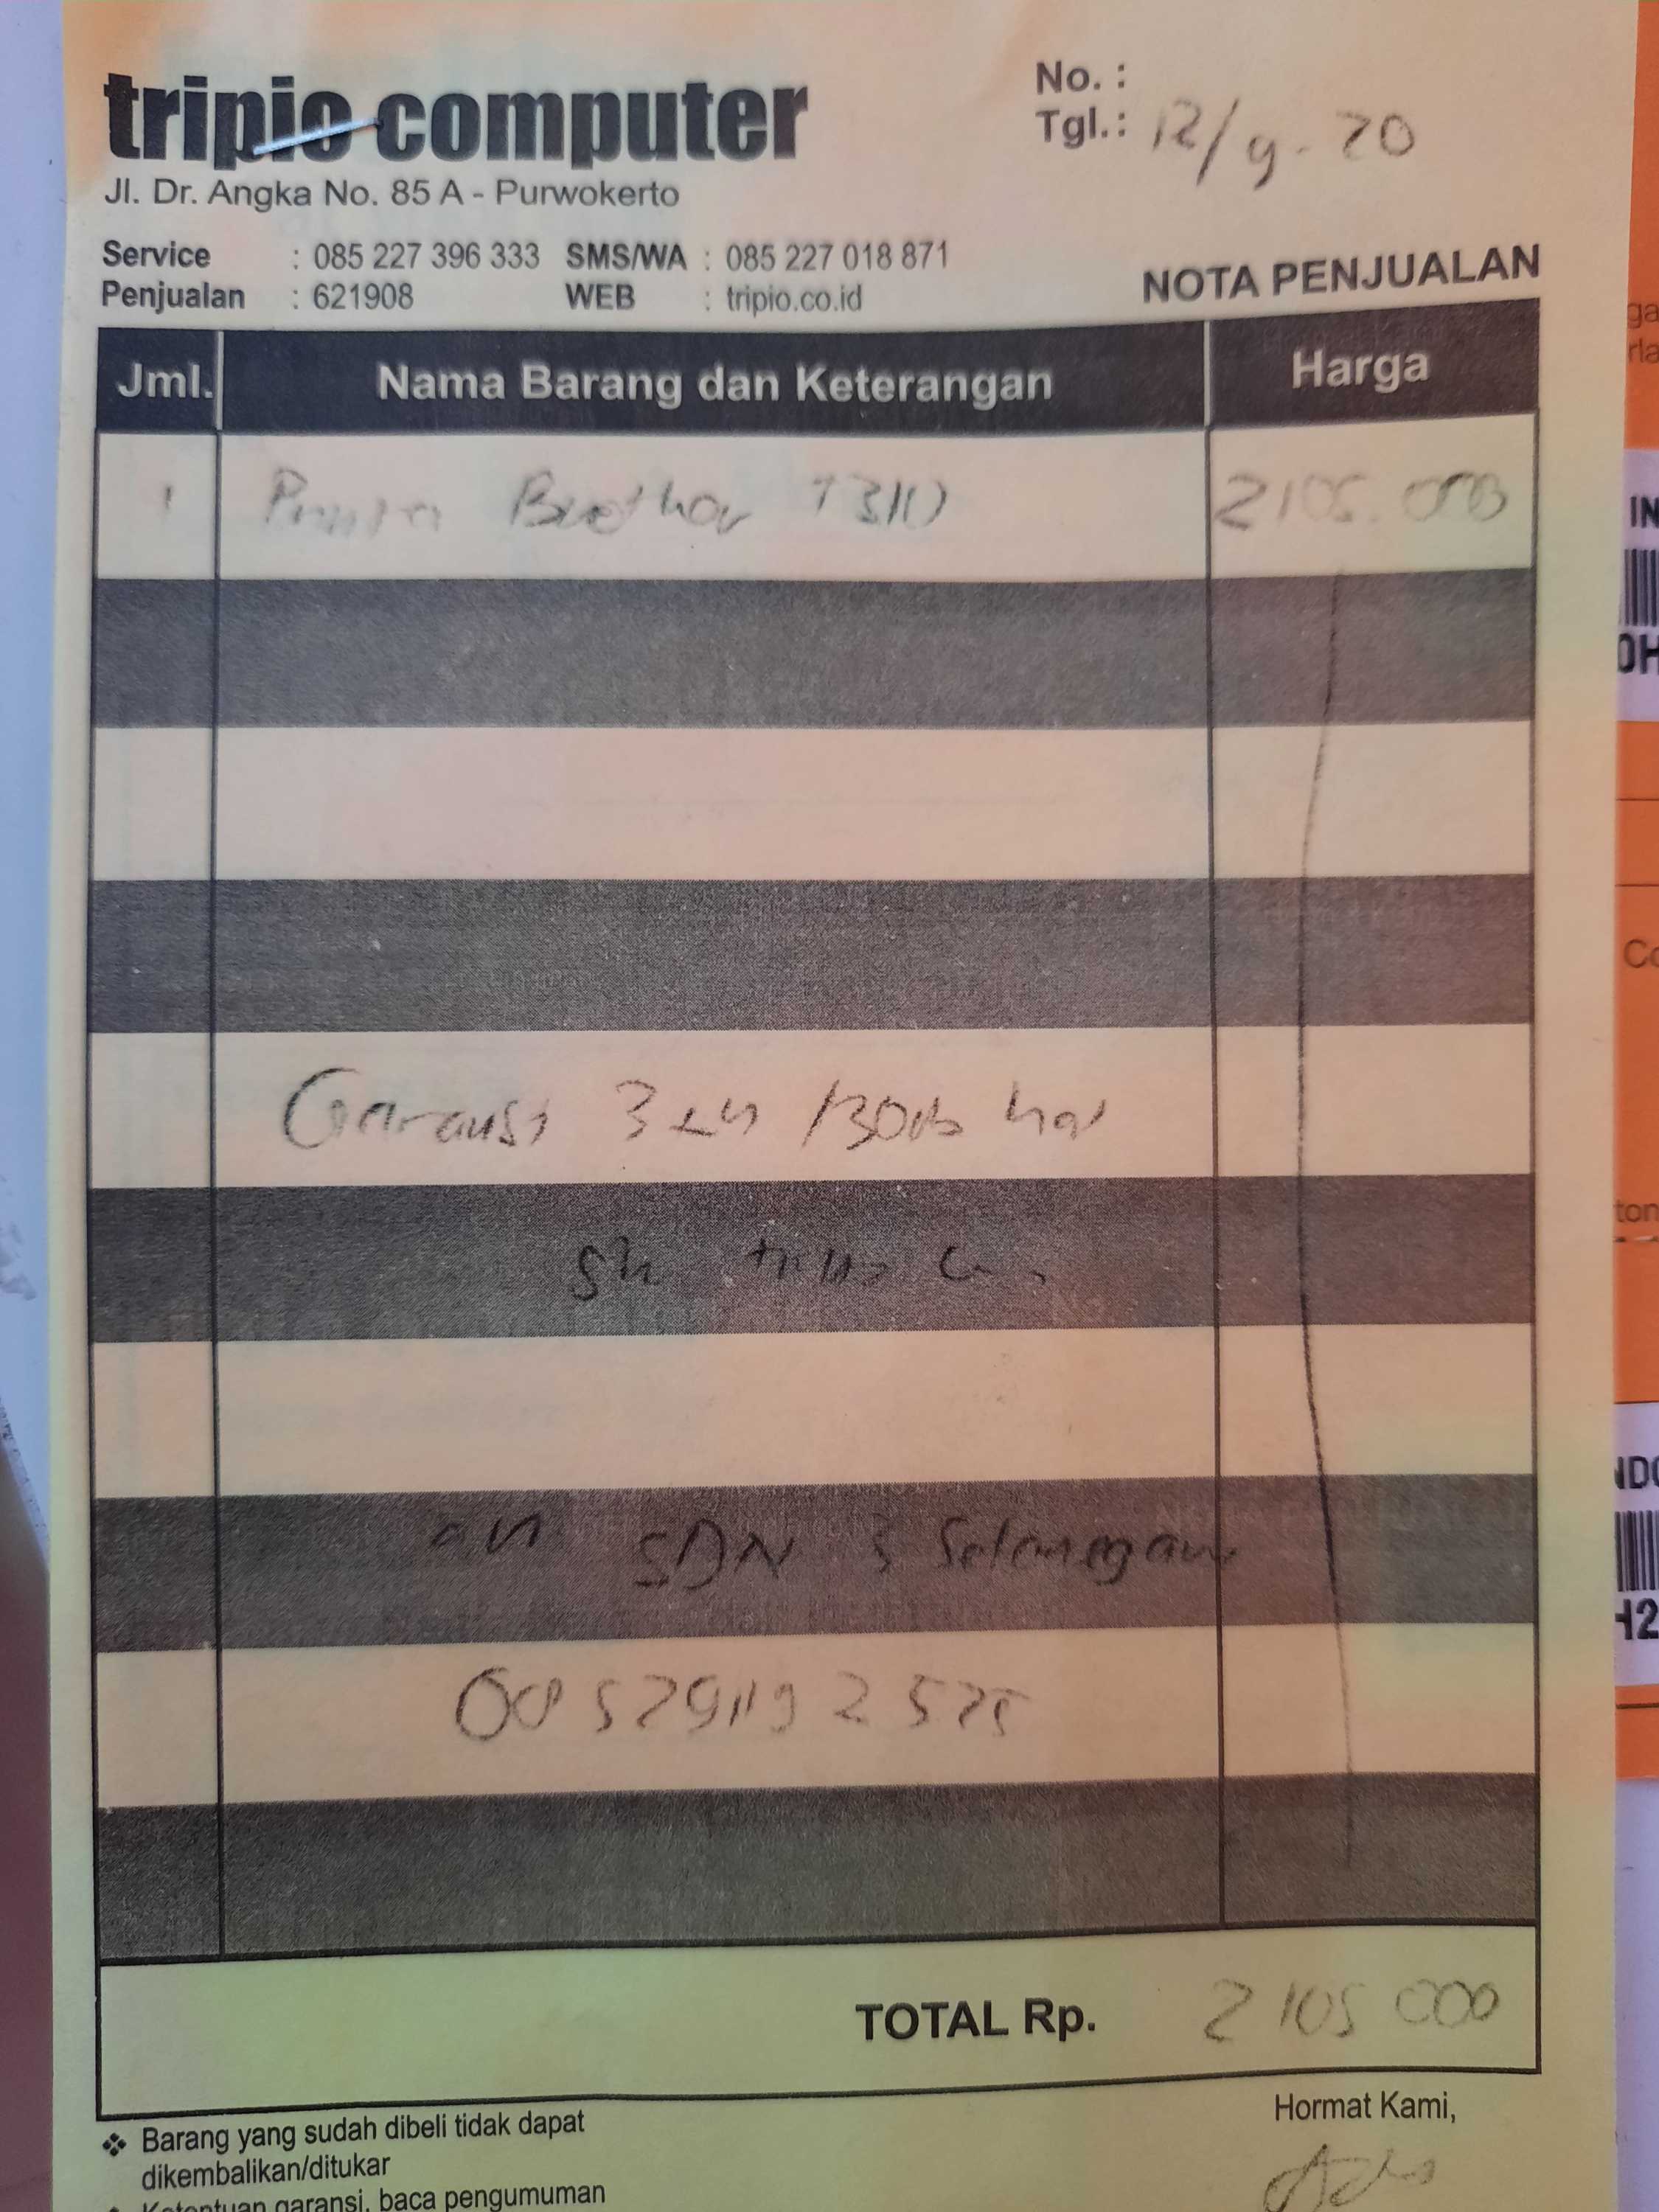 tripio computer
Jl. Dr. Angka No. 85 A - Purwokerto
No. :
Tgl.: 12/9-20
Service : 085 227 396 333 SMS/WA : 085 227 018 871
Penjualan : 621908 WEB : tripio.co.id
NOTA PENJUALAN
Jml. Nama Barang dan Keterangan Harga
1 Printer Brother T310 2105.000
Garansi 3 th /30rb hal
an SDN 3 Selanegara
TOTAL Rp. 2105 000
Hormat Kami,
❖ Barang yang sudah dibeli tidak dapat
dikembalikan/ditukar
Ketentuan garansi, baca pengumuman